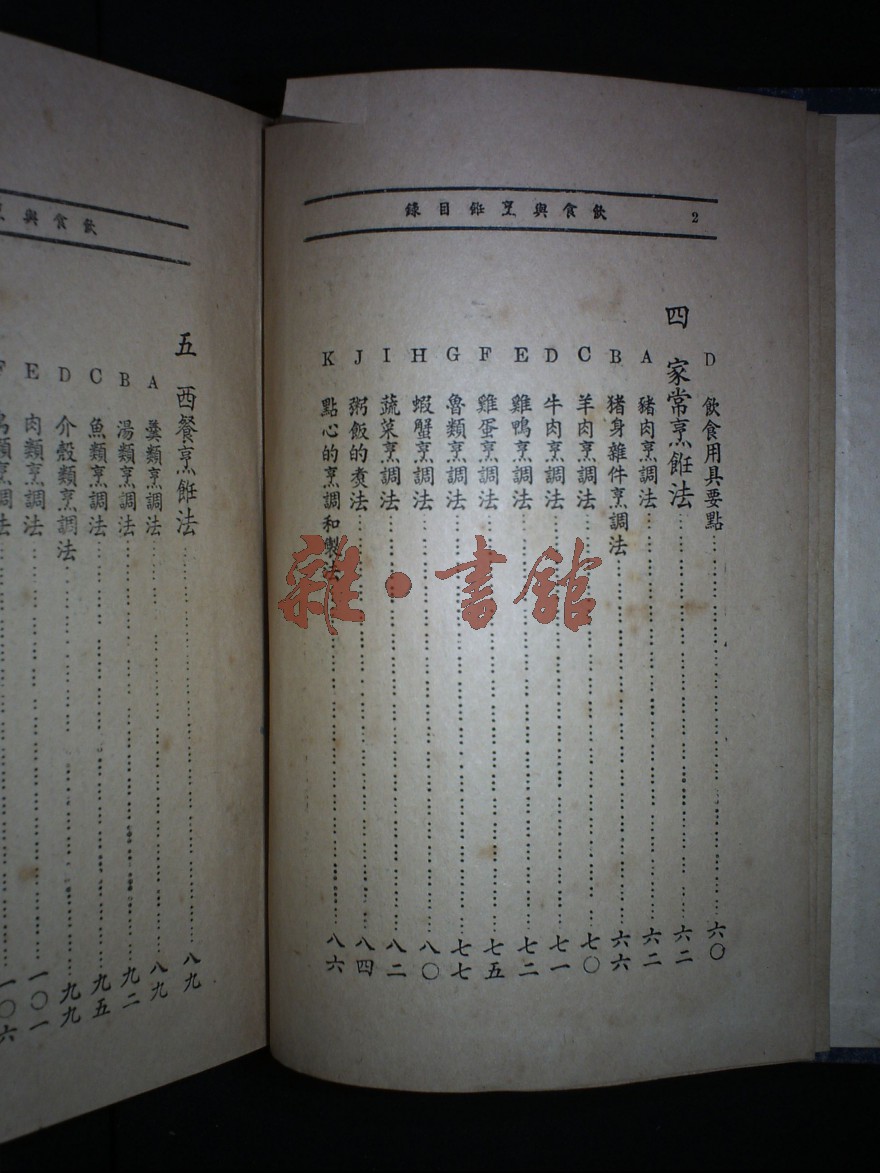 飲食與烹飪目錄 2
D 飲食用具要點 六〇
四 家常烹飪法 六二
A 豬肉烹調法 六二
B 猪身雜件烹調法 六六
C 羊肉烹調法 七〇
D 牛肉烹調法 七一
E 雞鴨烹調法 七二
F 雞蛋烹調法 七五
G 魯類烹調法 七七
H 蝦蟹烹調法 八〇
I 蔬菜烹調法 八二
J 粥飯的煑法 八四
K 點心的烹調和製法 八六
雜·書館
飲食與
五 西餐烹飪法 八九
A 羹類烹調法 八九
B 湯類烹調法 九二
C 魚類烹調法 九五
D 介殼類烹調法 九九
E 肉類烹調法 一〇一
類烹調法 一〇六